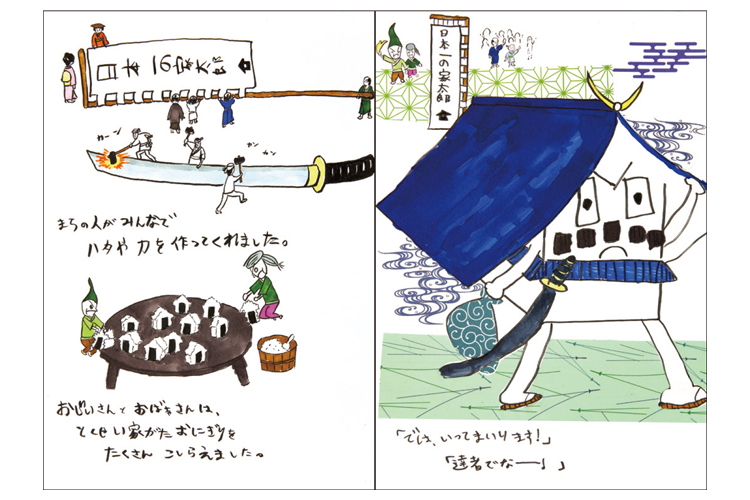 日本一の家太郎
カーン
カン
カン
まちの人がみんなで
ハタや 刀を作ってくれました。
おじいさんと おばあさんは、
とくせい家がたおにぎりを
たくさん こしらえました。
日本一の家太郎
「では、いってまいります!」
「達者でなー!」